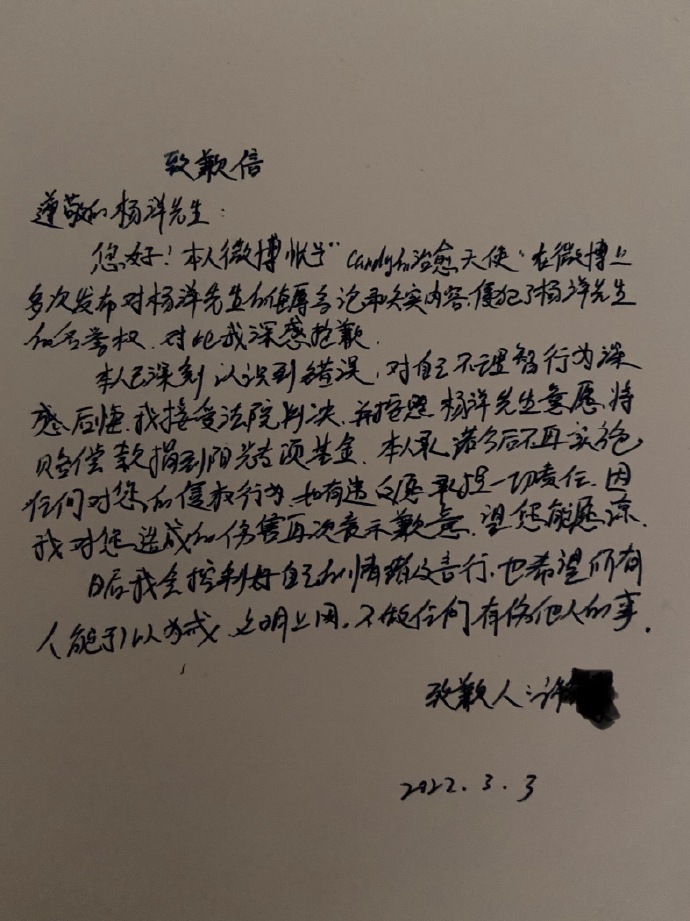 致歉信
尊敬的杨洋先生：
您好！本人微博账号“Candy的治愈天使”在微博上
多次发布对杨洋先生的侮辱言论和失实内容，侵犯了杨洋先生
的名誉权，对此我深感抱歉．
本人已深刻认识到错误，对自己不理智行为深
感后悔，我接受法院判决，并按照杨洋先生意愿，将
赔偿款捐到阳光专项基金．本人承诺今后不再实施
任何对您的侵权行为，如有违反愿承担一切责任．因
我对您造成的伤害再次表示歉意，望您能愿谅．
日后我会控制好自己的情绪及言行，也希望所有
人能引以为戒，文明上网，不做任何有伤他人的事．
致歉人：许
2022．3．3